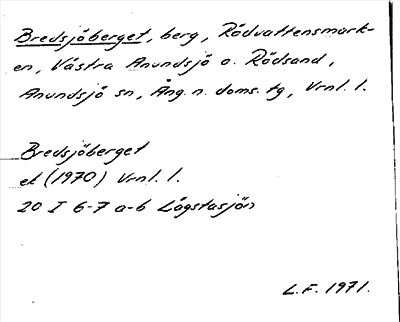 Bredsjöberget, berg, Rödvattensmark-
en, Västra Anundsjö o. Rödsand,
Anundsjö sn, Ång. n. doms. tg, Vrnl. l.
Bredsjöberget
ek (1970) Vrnl. l.
20 I 6-7 a-b Lägstasjön
L.F. 1971.